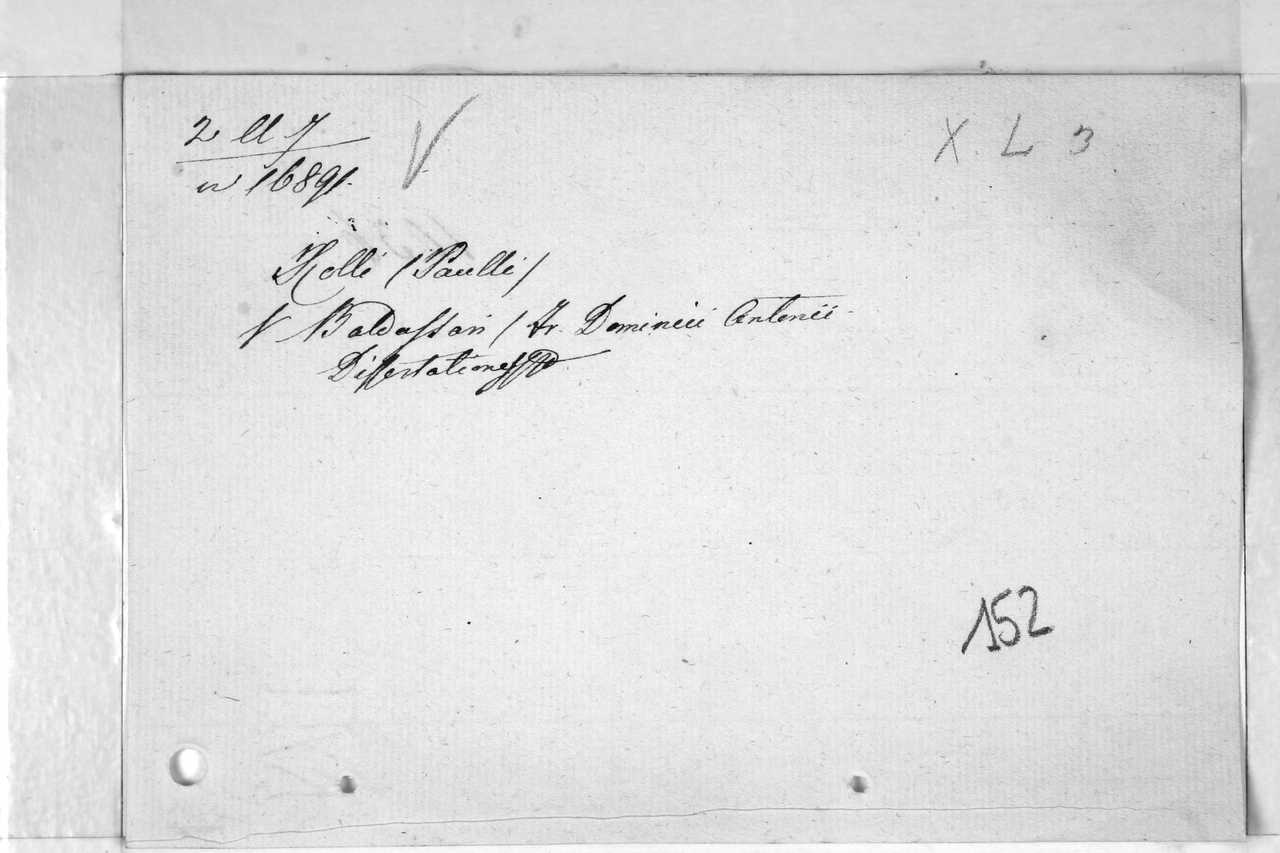 2 U 7 V X. L 3
n 16891.
Kolli (Paulli)
V Baldassari / Fr. Dominici Antonii.
Dissertationes
152